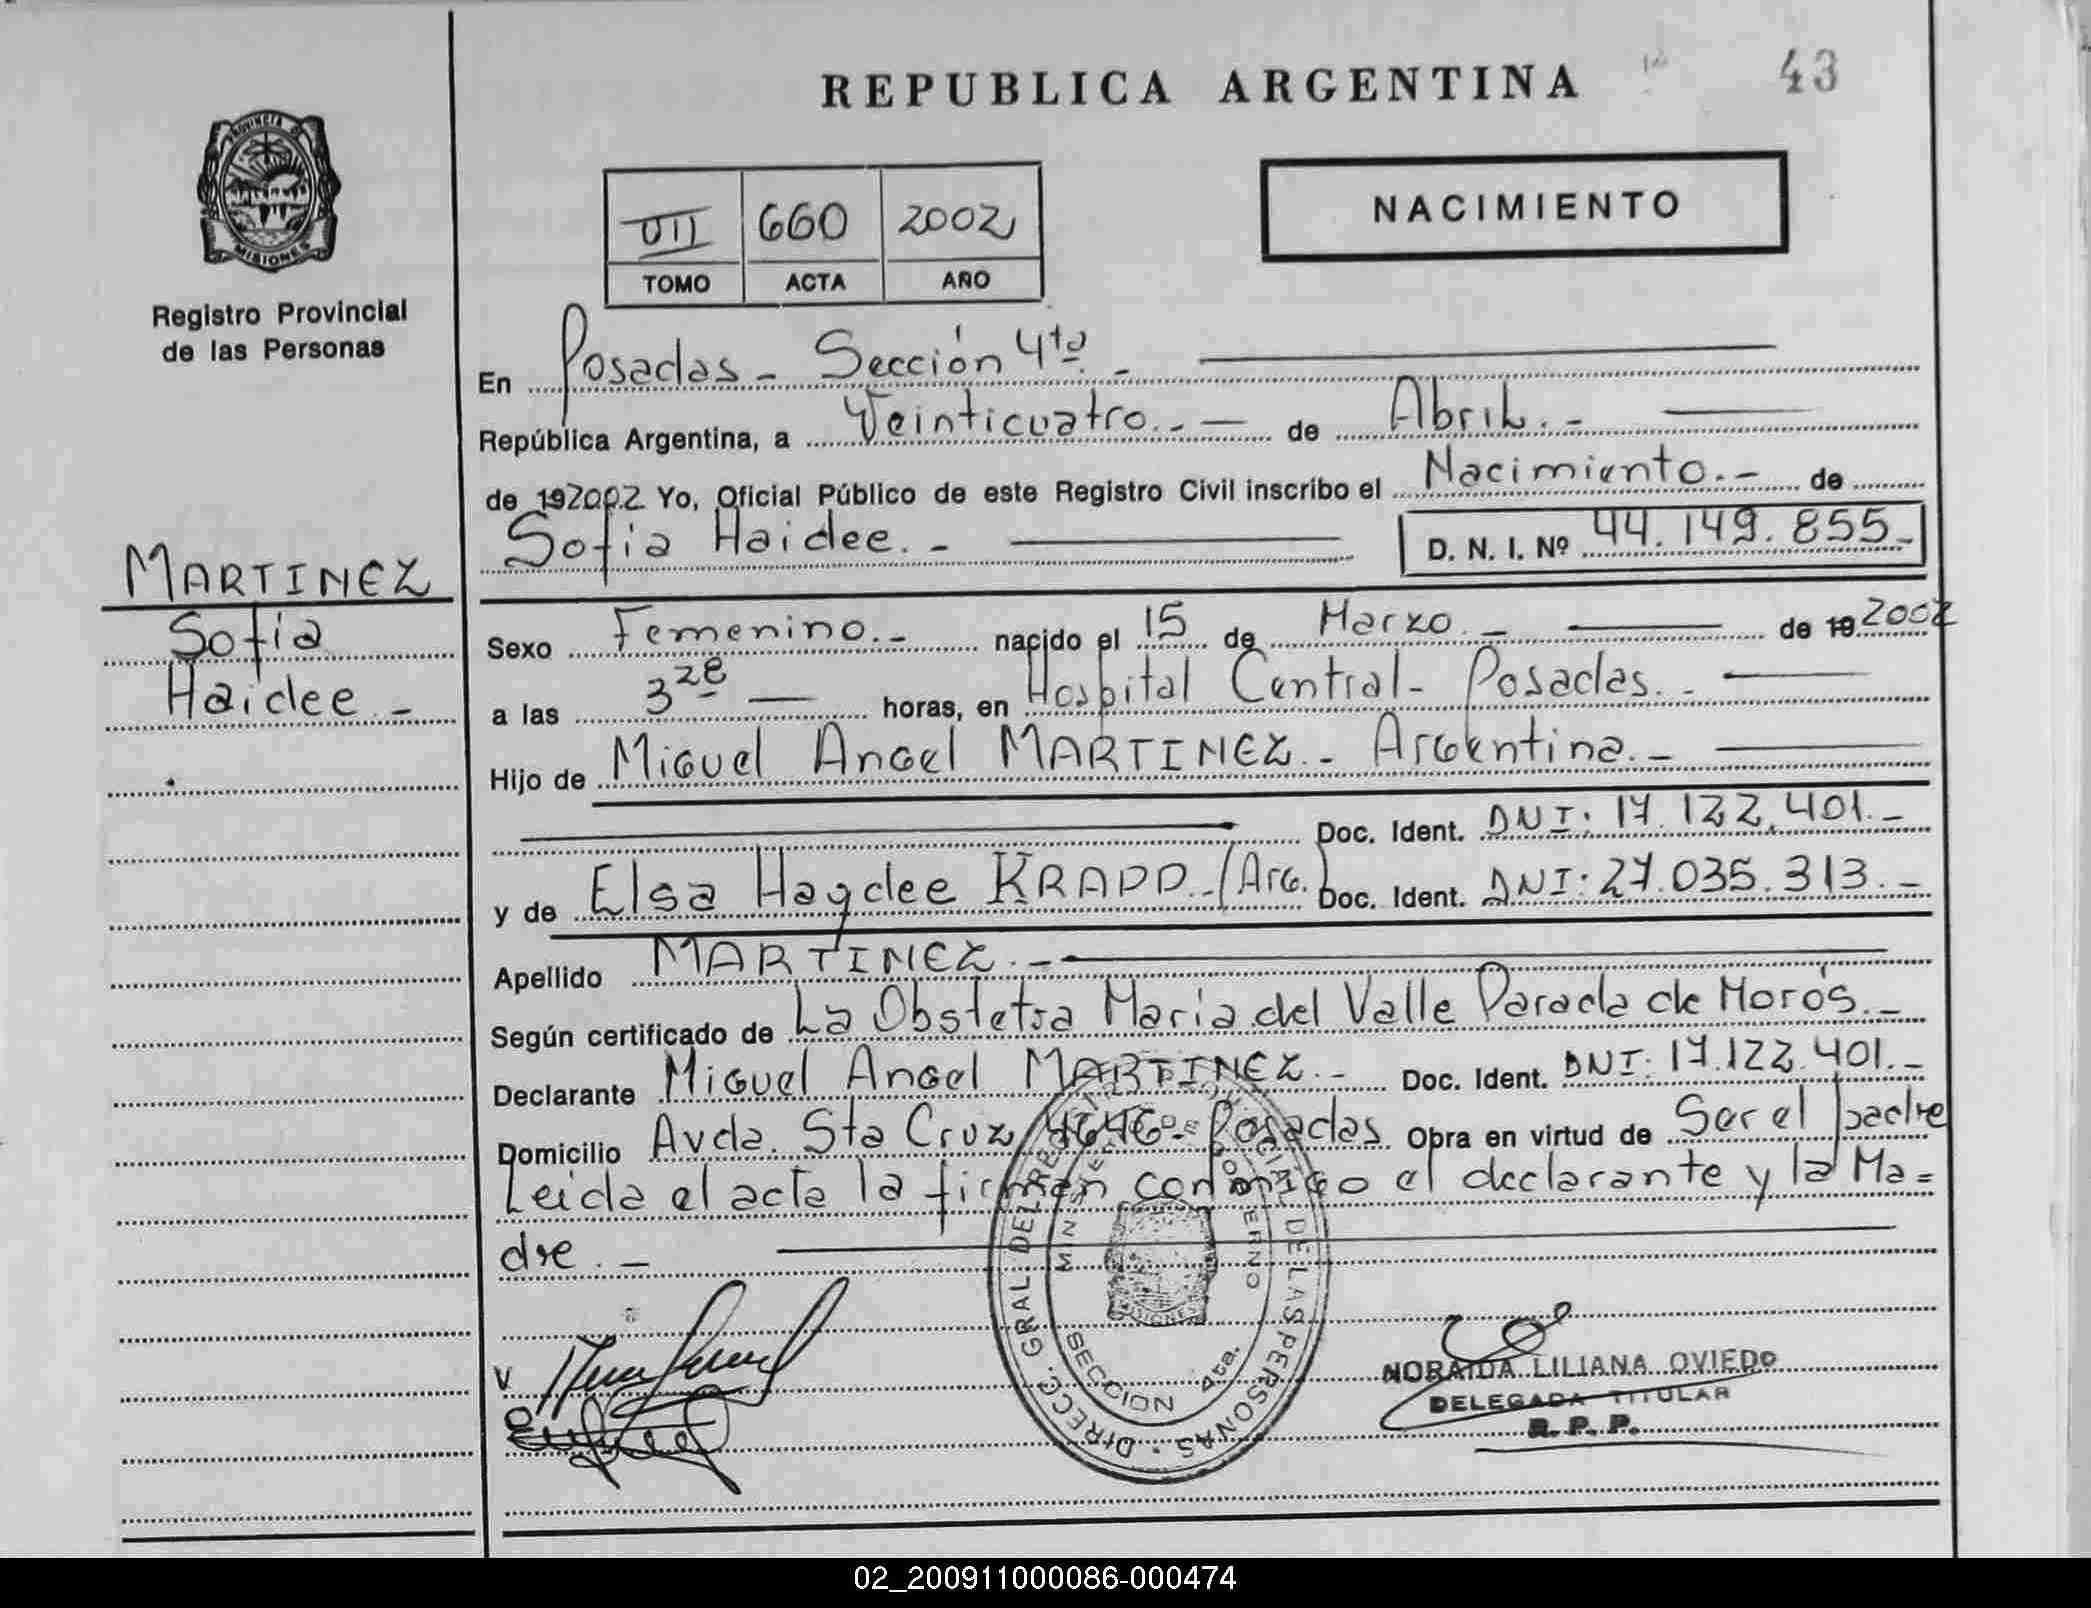 REPUBLICA ARGENTINA
43
PROVINCIA DE
MISIONES
Registro Provincial
de las Personas
VII 660 2002
TOMO ACTA AÑO
NACIMIENTO
En Posadas - Sección 4ta. -
República Argentina, a Veinticuatro. - de Abril. -
de 192002 Yo, Oficial Público de este Registro Civil inscribo el Nacimiento. - de
Sofia Haidee. - D. N. I. Nº 44.149.855-
MARTINEZ
Sofia
Haidee -
Sexo Femenino. - nacido el 15 de Marzo. - de 19 2002
a las 3 20 horas, en Hospital Central - Posadas. -
Hijo de Miguel Angel MARTINEZ. - Argentina. -
Doc. Ident. DNI: 17.122.401. -
y de Elsa Haydee KRAPP. - (Arg.) Doc. Ident. DNI: 27.035.313. -
Apellido MARTINEZ. -
Según certificado de La Obstetra Maria del Valle Parada de Morós. -
Declarante Miguel Angel MARTINEZ. - Doc. Ident. DNI: 17.122.401. -
Domicilio Avda. Sta Cruz 4646 - Posadas Obra en virtud de Ser el padre
Leida el acta la firman conmigo el declarante y la Ma=
dre. -
DIRECC. GRAL DEL REG. PROVINCIAL DE LAS PERSONAS
SECCION 4ta.
NORAIDA LILIANA OVIEDO
DELEGADA TITULAR
R. P. P.
02_200911000086-000474